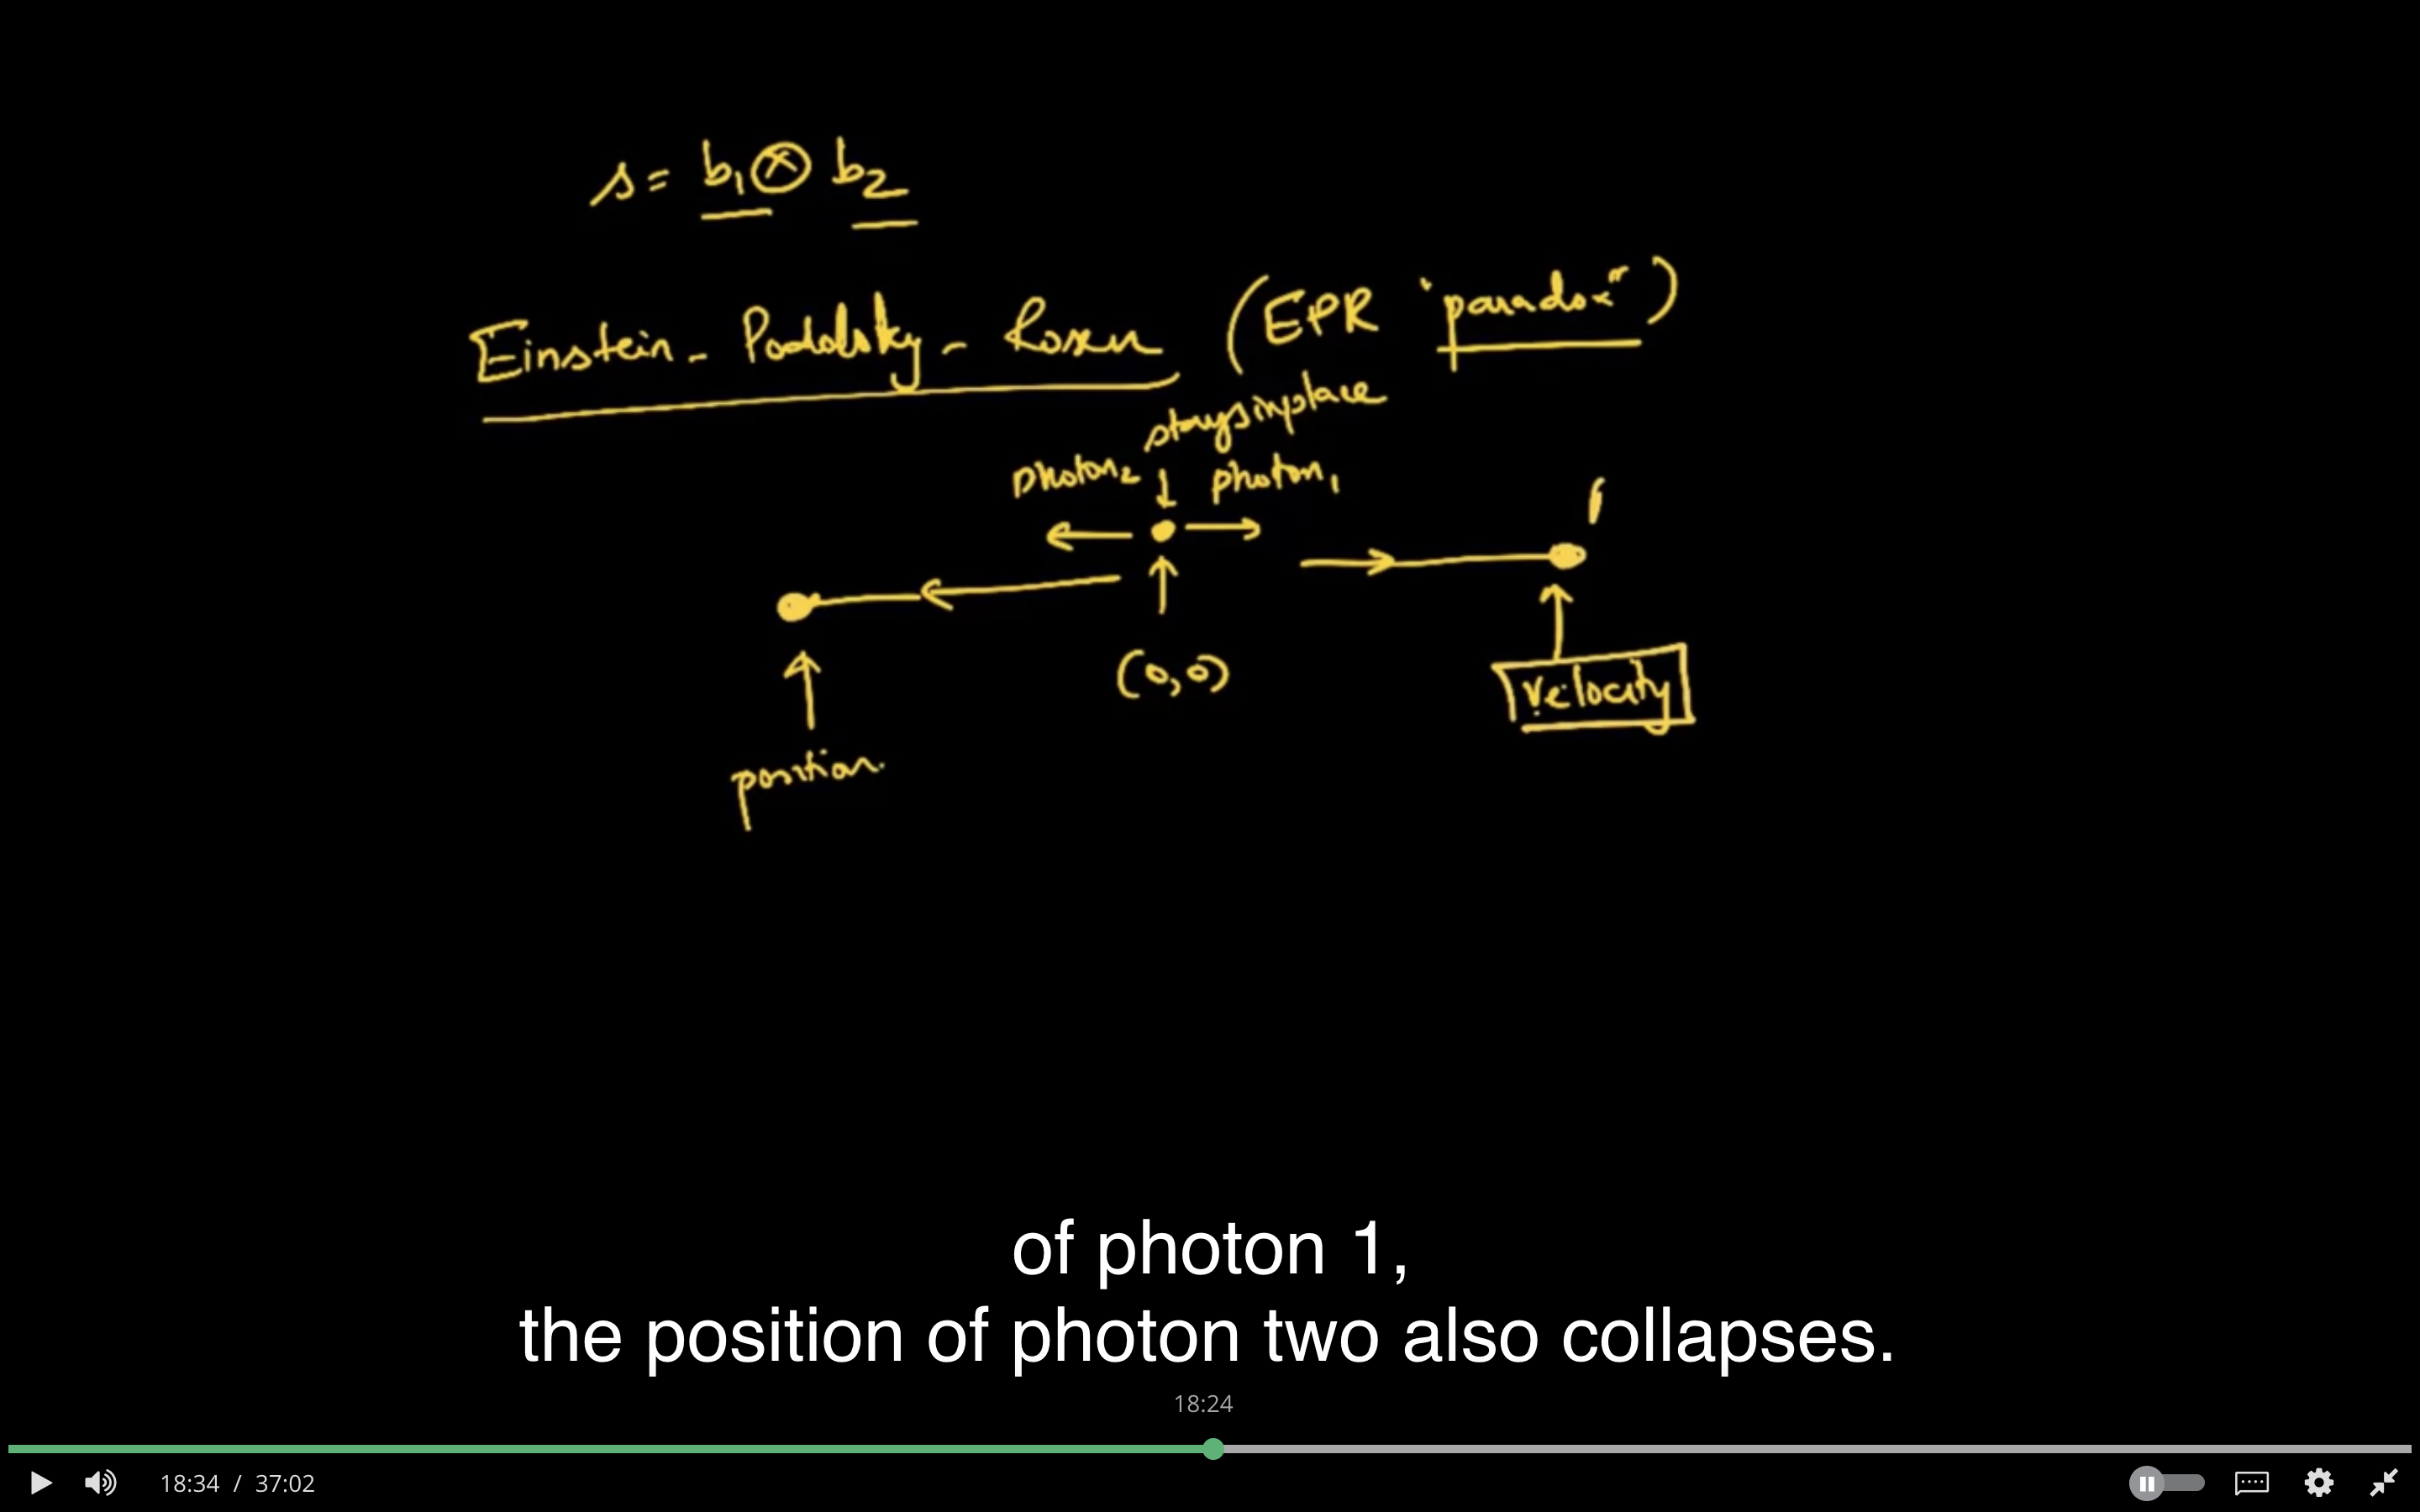 s = b₁ ⊗ b₂
Einstein - Podolsky - Rosen (EPR "paradox")
stays in place
photon₂ photon₁
(0,0)
velocity
position.
of photon 1,
the position of photon two also collapses.
18:24
18:34 / 37:02